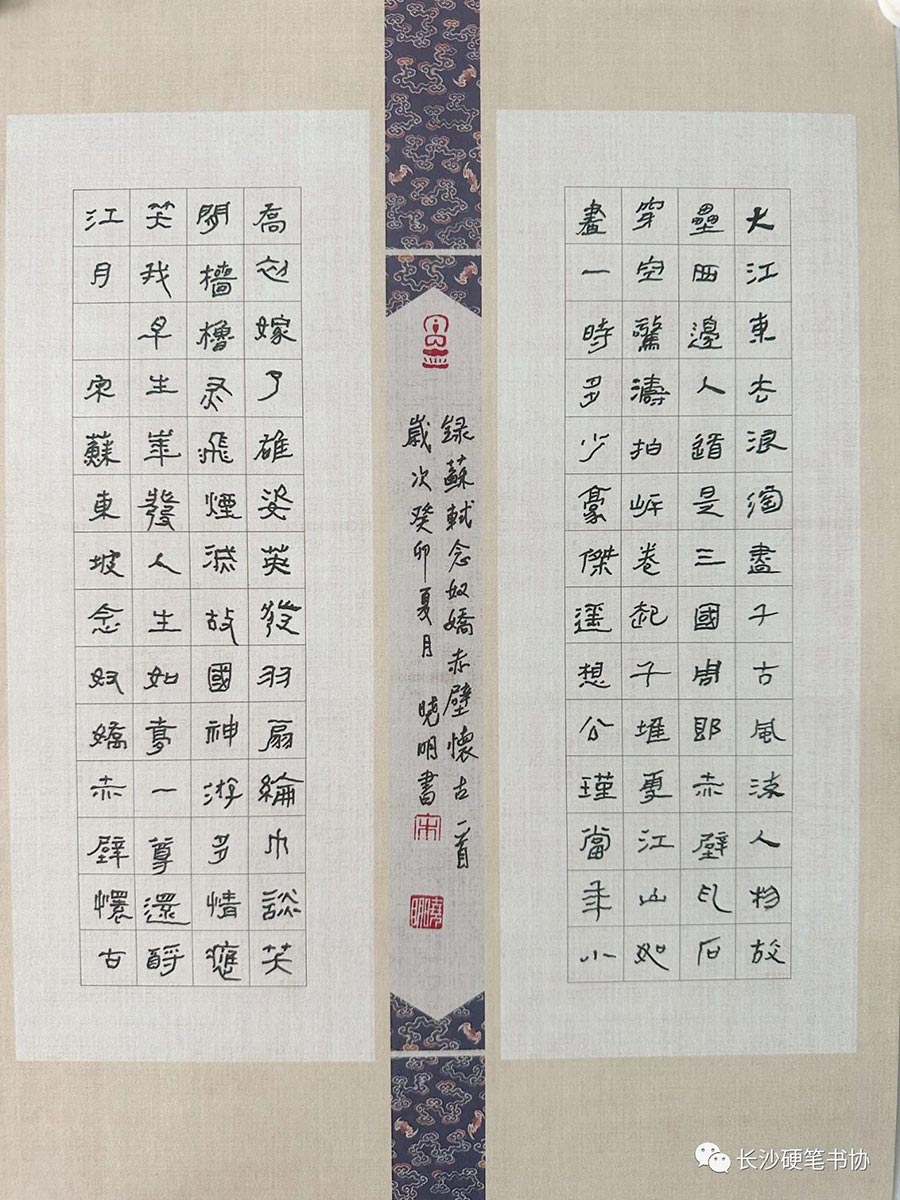 大江東去浪淘盡千古風流人物故
壘西邊人道是三國周郎赤壁乱石
穿空驚濤拍岸卷起千堆雪江山如
畫一時多少豪傑遥想公瑾當年小
録蘇軾念奴嬌赤壁懷古一首
歲次癸卯夏月 曉明書
宋
曉明
喬初嫁了雄姿英發羽扇綸巾談笑
間檣櫓灰飛煙滅故國神游多情應
笑我早生華發人生如夢一尊還酹
江月 宋蘇東坡念奴嬌赤壁懷古
长沙硬笔书协